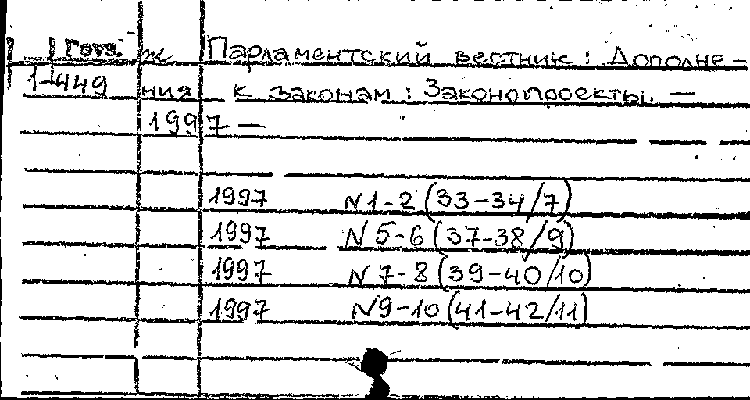 ж Парламентский вестник: Дополне-
1-449 ния к законам: Законопроекты. —
1997 —
1997 N1-2 (33-34/7)
1997 N5-6 (37-38/9)
1997 N7-8 (39-40/10)
1997 N9-10 (41-42/11)